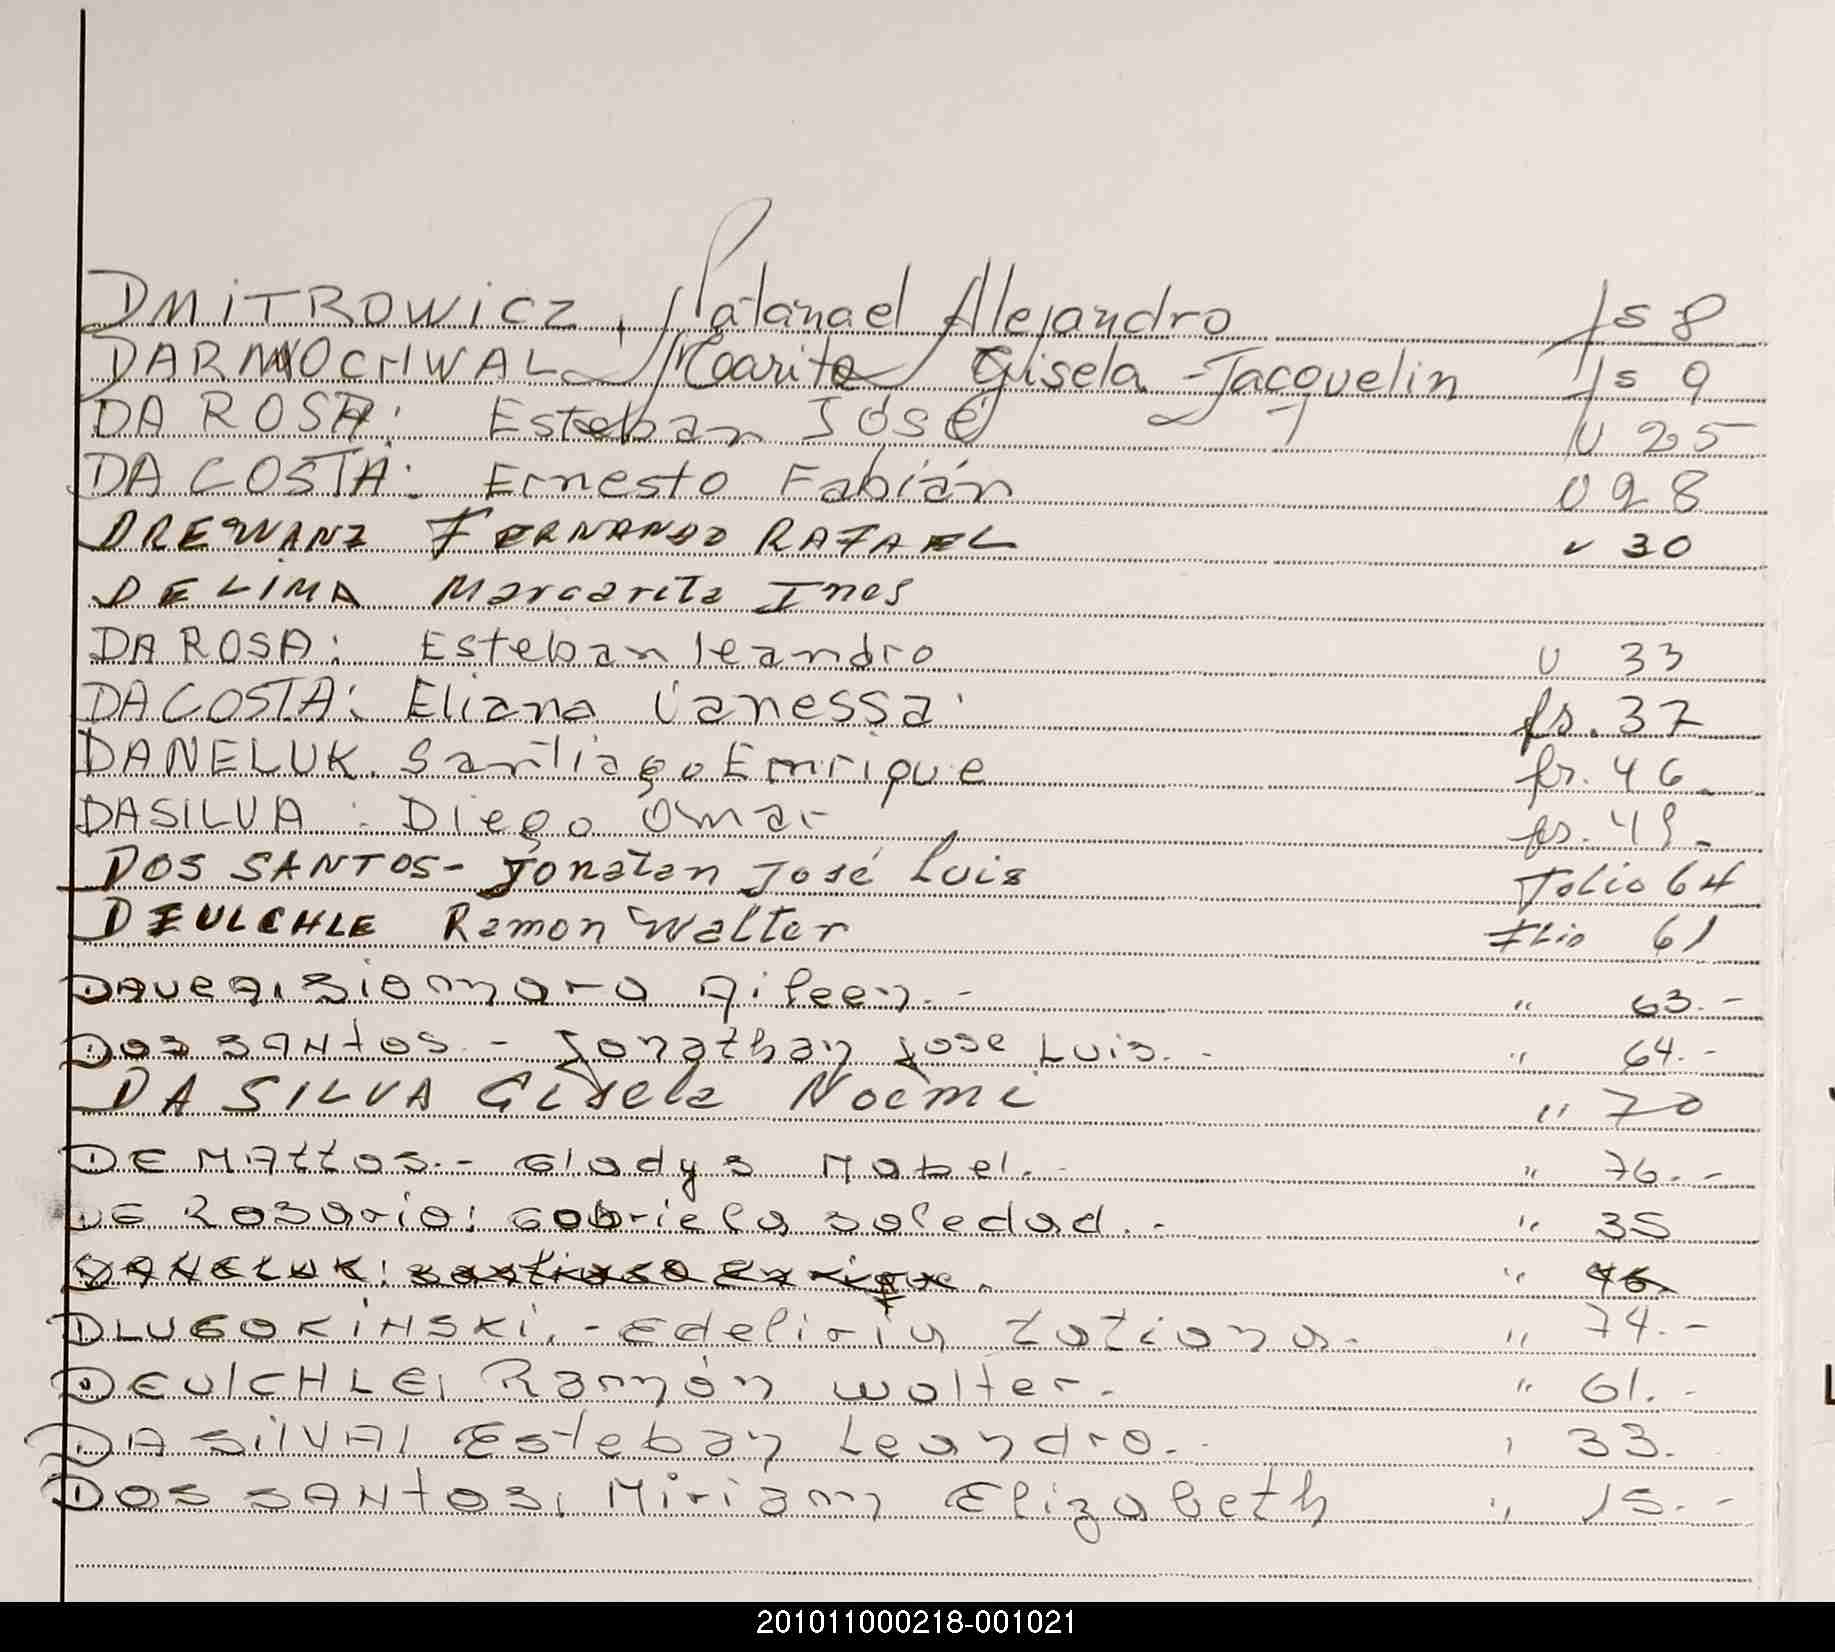 DMITROWICZ, Natanael Alejandro fs 8
DARMOCHWAL Marita Gisela Jacquelin fs 9
DA ROSA: Esteban José U 25
DA COSTA: Ernesto Fabián U 28
DREWANZ FERNANDO RAFAEL v 30
DE LIMA Margarita Ines
DA ROSA: Esteban leandro U 33
DA COSTA: Eliana Vanessa fs. 37
DANELUK. Santiago Enrique fs. 46
DA SILVA: Diego Omar fs. 49
DOS SANTOS- Jonatan José Luis Folio 64
DEULCHLE Ramon Walter Flio 61
Aileen.- " 63.-
DOS SANtos.- Jonathan Jose Luis.- " 64.-
DA SILVA Gisela Noemi " 70
DE MAttos.- Gladys Mabel.- " 76.-
DE Rosario: Gabriela soledad.- " 35
DANELUK: santiago Enrique. " 46.
DLUGOKINSKI.- Edeliria tatiana.- " 74.-
DEUlCHLE, Ramón walter.- " 61.-
DA SilVA, Esteban Leandro.- " 33.
DOS SANtos, Miriam Elizabeth " 15.-
201011000218-001021